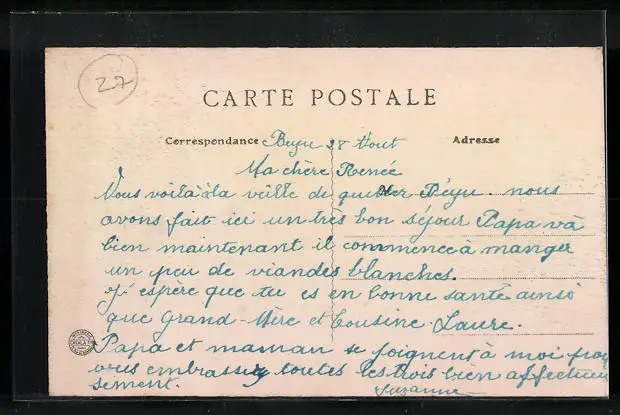 27
CARTE POSTALE
Correspondance Beyu 28 Aout Adresse
Ma chère Renée
Nous voilà à la veille de quitter Béyu. nous
avons fait ici un très bon séjour Papa và
bien maintenant il commence à manger
un peu de viandes blanches.
J'espère que tu es en bonne santé ainsi
que Grand-Mère et Cousine Laure.
Papa et maman se joignent à moi pour
vous embrasser toutes les trois bien affectueu
sement. Suzanne